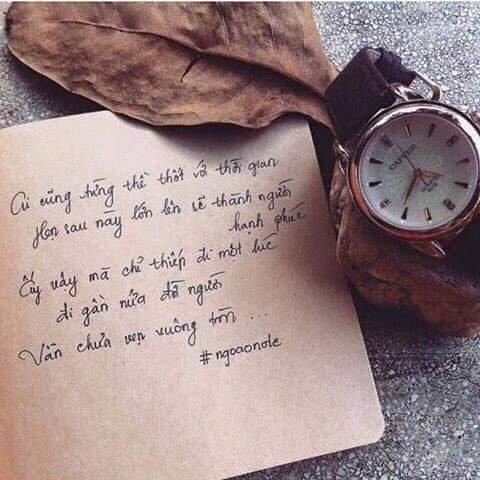 Ai cũng từng thề thốt với thời gian
Hẹn sau này lớn lên sẽ thành người
hạnh phúc
Ấy vậy mà chỉ thiếp đi một lúc
đi gần nửa đời người
Vẫn chưa vẹn vuông tròn ...
#ngoaonote
CAPTER
QUARTZ